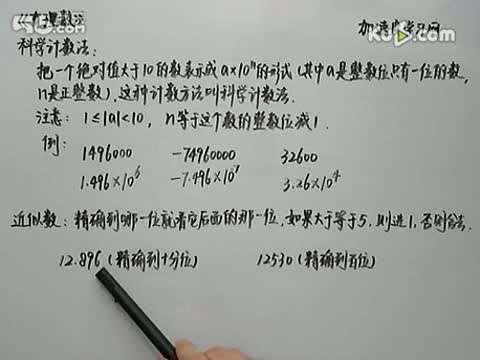 有理数
加速度学习网
KU6.com
科学计数法:
把一个绝对值大于10的数表示成 a×10ⁿ的形式(其中a是整数位只有一位的数,
n是正整数),这种计数方法叫科学计数法.
注意: 1≤|a|<10, n等于这个数的整数位减1.
例:
1496000 -74960000 32600
1.496×10⁶ -7.496×10⁷ 3.26×10⁴
近似数: 精确到哪一位就看它后面的那一位,如果大于等于5,则进1,否则舍去.
12.896(精确到十分位) 12530(精确到百位)